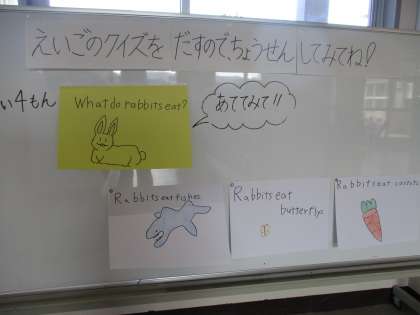 えいごのクイズを だすので、ちょうせんしてみてね!
い4もん
What do rabbits eat?
あててみて!!
Rabbits eat fishes.
Rabbits eat
butterflys
Rabbits eat carrots.